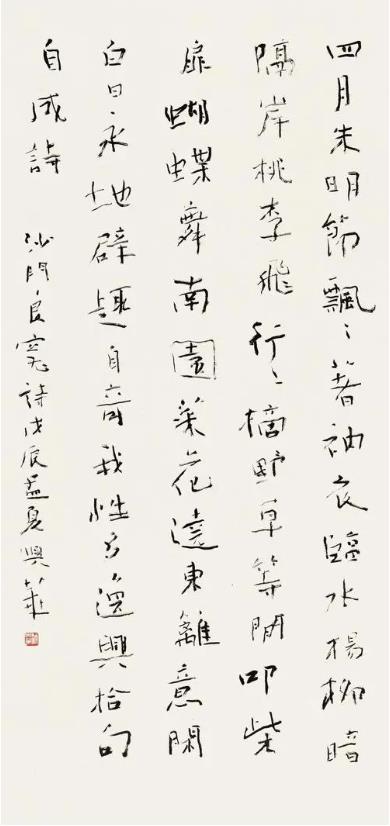 四月朱明節飄〻著衲衣臨水楊柳暗
隔岸桃李飛行〻摘野草等閒叩柴
扉蝴蝶舞南園菜花遶東籬意閑
白日永地辟趣自奇我性多逸興拾句
自成詩 沙門良寬詩戊辰孟夏興